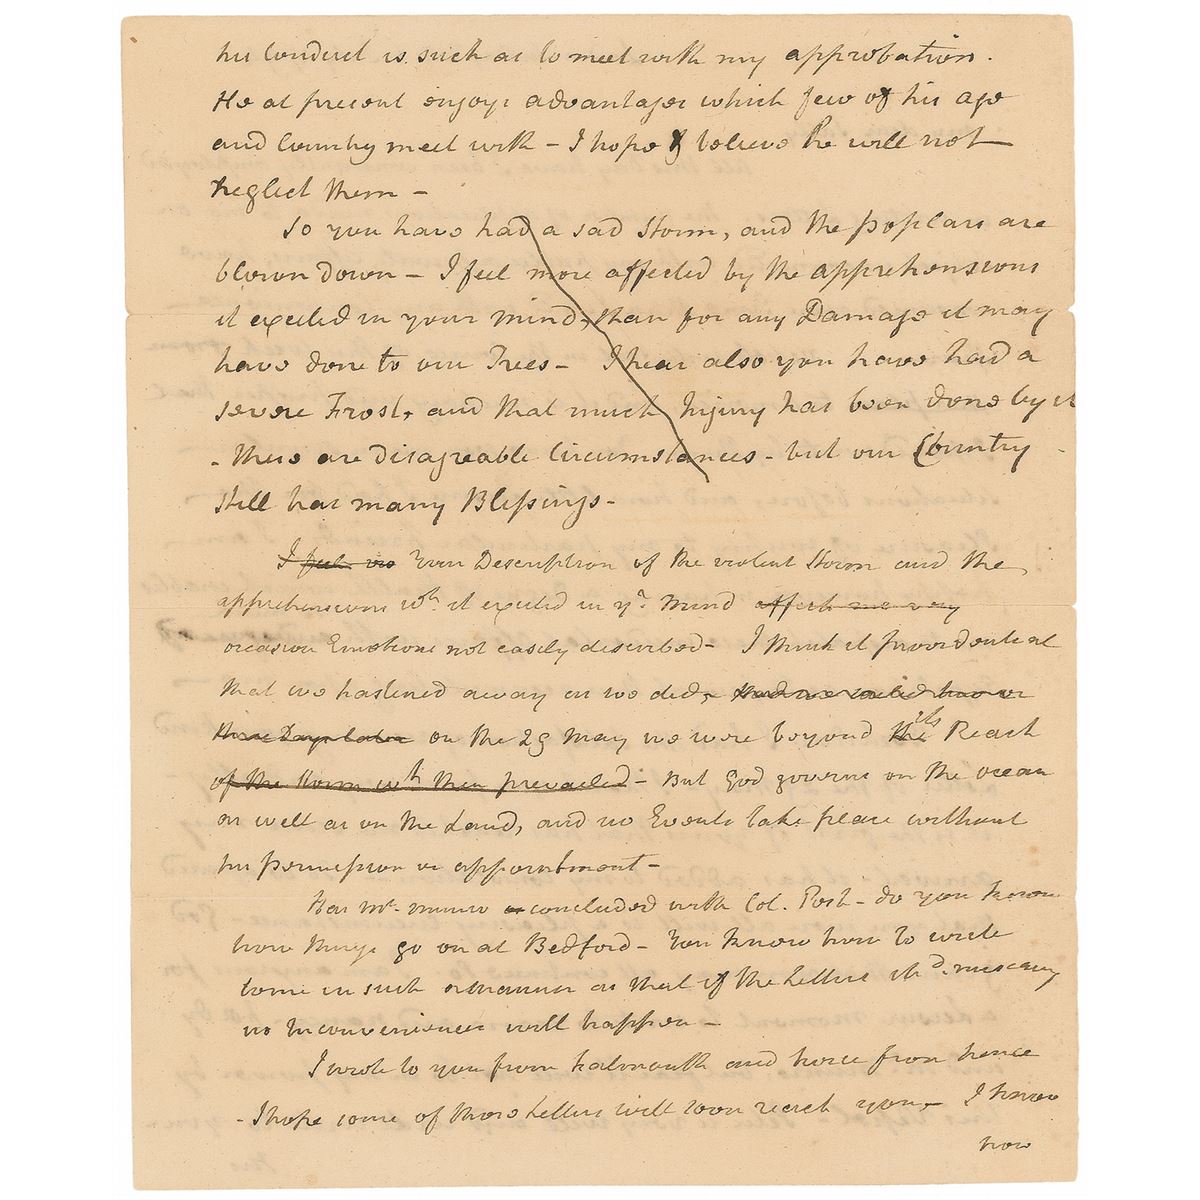 his Conduct is such as to meet with my approbation.
He at present enjoys advantages which few of his age
and Country meet with – I hope & believe he will not
neglect them –
So you have had a sad Storm, and the poplars are
blown down – I feel more affected by the apprehensions
it excited in your mind, than for any Damage it may
have done to our Trees – I hear also you have had a
severe Frost, and that much Injury has been done by it
– these are disagreable Circumstances – but our Country
still has many Blessings –
I feel Your Description of the violent Storm and the
apprehensions wh. it excited in yr. Mind affects me very
occasion Emotions not easily described – I think it providential
that we hastened away as we did,
three Days later on the 29 May we were beyond the its Reach
of the Storm wh. then prevailed – But God governs on the ocean
as well as on the Land, and no Events take place without
his permission or appointment –
Has Mr. Munro concluded with Col. Post – do you know
how things go on at Bedford – You know how to write
to me in such a manner as that if the Letters shd. miscarry
no Inconveniences will happen –
I wrote to you from Falmouth and twice from hence
– I hope some of those Letters will soon reach you – I know
how